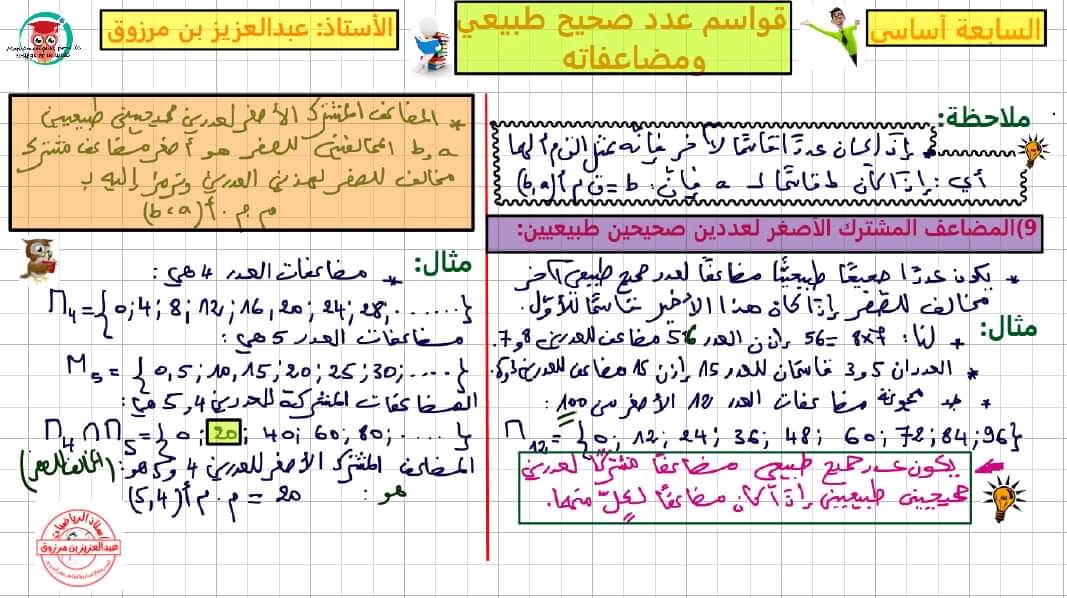 السابعة أساسي
قواسم عدد صحيح طبيعي
ومضاعفاته
الأستاذ: عبدالعزيز بن مرزوق
ملاحظة:
* إذا كان عددًا قاسمًا لآخر فإنه يمثل الق م أ لهما
أي: إذا كان b قاسمًا لـ a فإن: b = ق م أ (b,a)
9)المضاعف المشترك الأصغر لعددين صحيحين طبيعيين:
* يكون عددا صحيحًا طبيعيًّا مضاعفًا لعدد صحيح طبيعي آخر
مخالف للصفر إذا كان هذا الأخير قاسمًا للأوّل.
مثال:
* لنا: 8x7 =56 إذن العدد 56 مضاعف للعددين 8 و 7.
* العددان 5 و 3 قاسمان للعدد 15 إذن 15 مضاعف للعددين 3 و 5.
* جد مجموعة مضاعفات العدد 12 الأصغر من 100 :
M12 = {0; 12; 24; 36; 48; 60; 72; 84; 96}
يكون عدد صحيح طبيعي مضاعفًا مشتركًا لعددين
صحيحين طبيعيين إذا كان مضاعفًا لكلّ منهما.
* المضاعف المشترك الأصغر لعددين صحيحين طبيعيين
a و b المخالفين للصفر هو أصغر مضاعف مشترك
مخالف للصفر لهذين العددين ونرمز إليه بـ
م . م . أ (b، a)
مثال:
* مضاعفات العدد 4 هي :
M4 = {0; 4; 8; 12; 16, 20; 24; 28; ......}
مضاعفات العدد 5 هي :
M5 = {0, 5; 10, 15; 20; 25; 30; ....}
المضاعفات المشتركة للعددين 4 و 5 هي:
M4 ∩ M5 = {0; 20; 40; 60; 80; ....}
المضاعف المشترك الأصغر للعددين 4 و 5 هو: (المخالف للصفر)
هو : 20 = م . م أ (5,4)
أستاذ الرياضيات
عبدالعزيز بن مرزوق